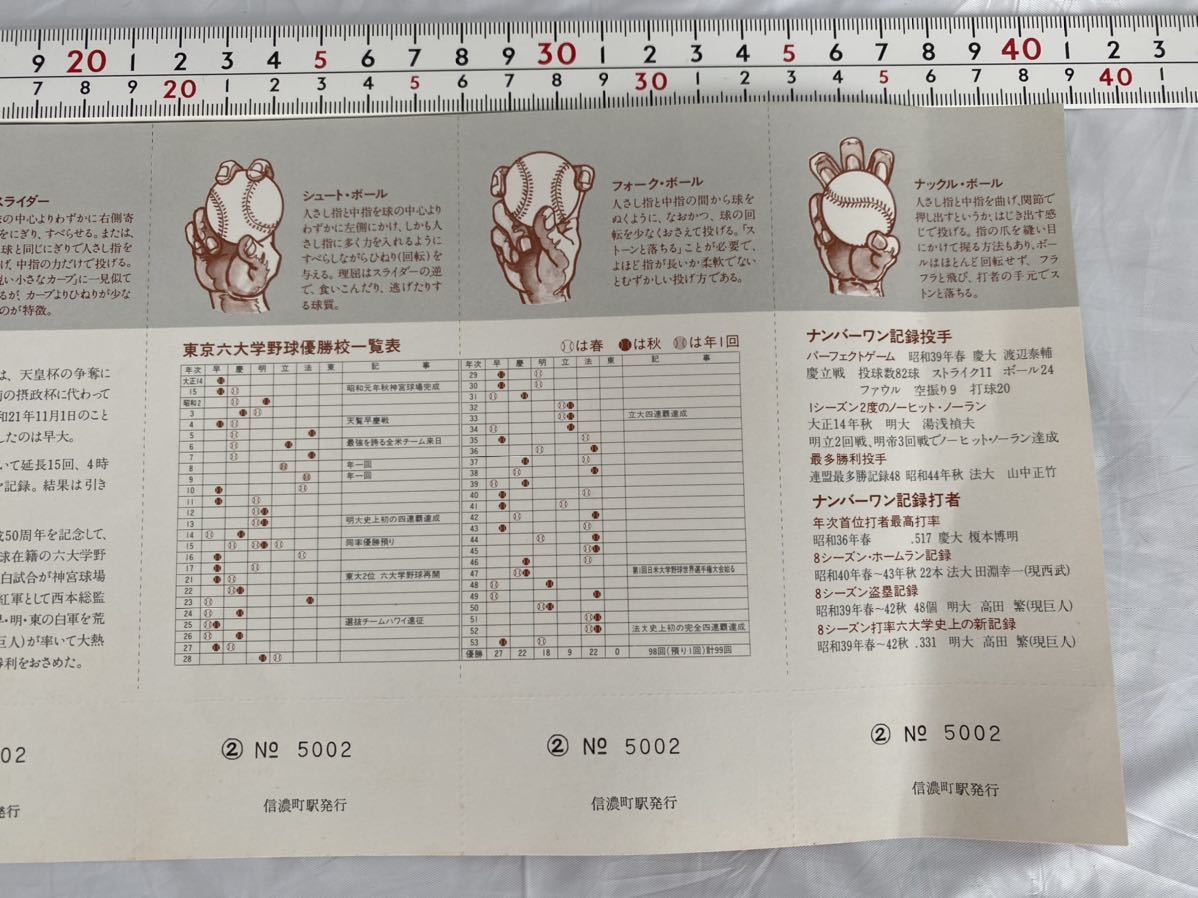 9 20 1 2 3 4 5 6 7 8 9 30 1 2 3 4 5 6 7 8 9 40 1 2 3
7 8 9 20 1 2 3 4 5 6 7 8 9 30 1 2 3 4 5 6 7 8 9 40 1
スライダー
球の中心よりわずかに右側寄
をにぎり、すべらせる。または、
球と同じにぎりで人さし指を
げ、中指の力だけで投げる。
鋭い小さなカーブに一見似て
るが、カーブよりひねりが少な
のが特徴。
シュート・ボール
人さし指と中指を球の中心より
わずかに左側にかけ、しかも人
さし指に多く力を入れるように
すべらしながらひねり(回転)を
与える。理屈はスライダーの逆
で、食いこんだり、逃げたりす
る球質。
フォーク・ボール
人さし指と中指の間から球を
ぬくように、なおかつ、球の回
転を少なくおさえて投げる。「ス
トーンと落ちる」ことが必要で、
よほど指が長いか柔軟でない
とむずかしい投げ方である。
ナックル・ボール
人さし指と中指を曲げ、関節で
押し出すというか、はじき出す感
じで投げる。指の爪を縫い目
にかけて握る方法もあり、ボー
ルはほとんど回転せず、フラ
フラと飛び、打者の手元でス
トンと落ちる。
は、天皇杯の争奪に
前の摂政杯に代わって
和21年11月1日のこと
したのは早大。
いて延長15回、4時
記録。結果は引き
成50周年を記念して、
球在籍の六大学野
白試合が神宮球場
紅軍として西本総監
早・明・東の白軍を荒
巨人)が率いて大熱
勝利をおさめた。
東京六大学野球優勝校一覧表
は春 は秋 は年1回
年次 早 慶 明 立 法 東 記 事
大正14
15 昭和元年秋神宮球場完成
昭和2
3
4 天覧早慶戦
5
6 最強を誇る全米チーム来日
7
8 年一回
9 年一回
10
11
12
13 明大史上初の四連覇達成
14
15 同率優勝預り
16
17
21 東大2位 六大学野球再開
22
23
24
25 選抜チームハワイ遠征
26
27
28
年次 早 慶 明 立 法 東 記 事
29
30
31
32
33 立大四連覇達成
34
35
36
37
38
39
40
41
42
43
44
45
46
47 第1回日米大学野球世界選手権大会始る
48
49
50
51
52 法大史上初の完全四連覇達成
53
優勝 27 22 18 9 22 0 98回(預り1回)計99回
ナンバーワン記録投手
パーフェクトゲーム 昭和39年春 慶大 渡辺泰輔
慶立戦 投球数82球 ストライク11 ボール24
ファウル 空振り9 打球20
1シーズン2度のノーヒット・ノーラン
大正14年秋 明大 湯浅禎夫
明立2回戦、明帝3回戦でノーヒット・ノーラン達成
最多勝利投手
連盟最多勝記録48 昭和44年秋 法大 山中正竹
ナンバーワン記録打者
年次首位打者最高打率
昭和36年春 .517 慶大 榎本博明
8シーズン・ホームラン記録
昭和40年春〜43年秋 22本 法大 田淵幸一(現西武)
8シーズン盗塁記録
昭和39年春〜42秋 48個 明大 高田 繁(現巨人)
8シーズン打率六大学史上の新記録
昭和39年春〜42秋 .331 明大 高田 繁(現巨人)
02
発行
② № 5002
信濃町駅発行
② № 5002
信濃町駅発行
② № 5002
信濃町駅発行